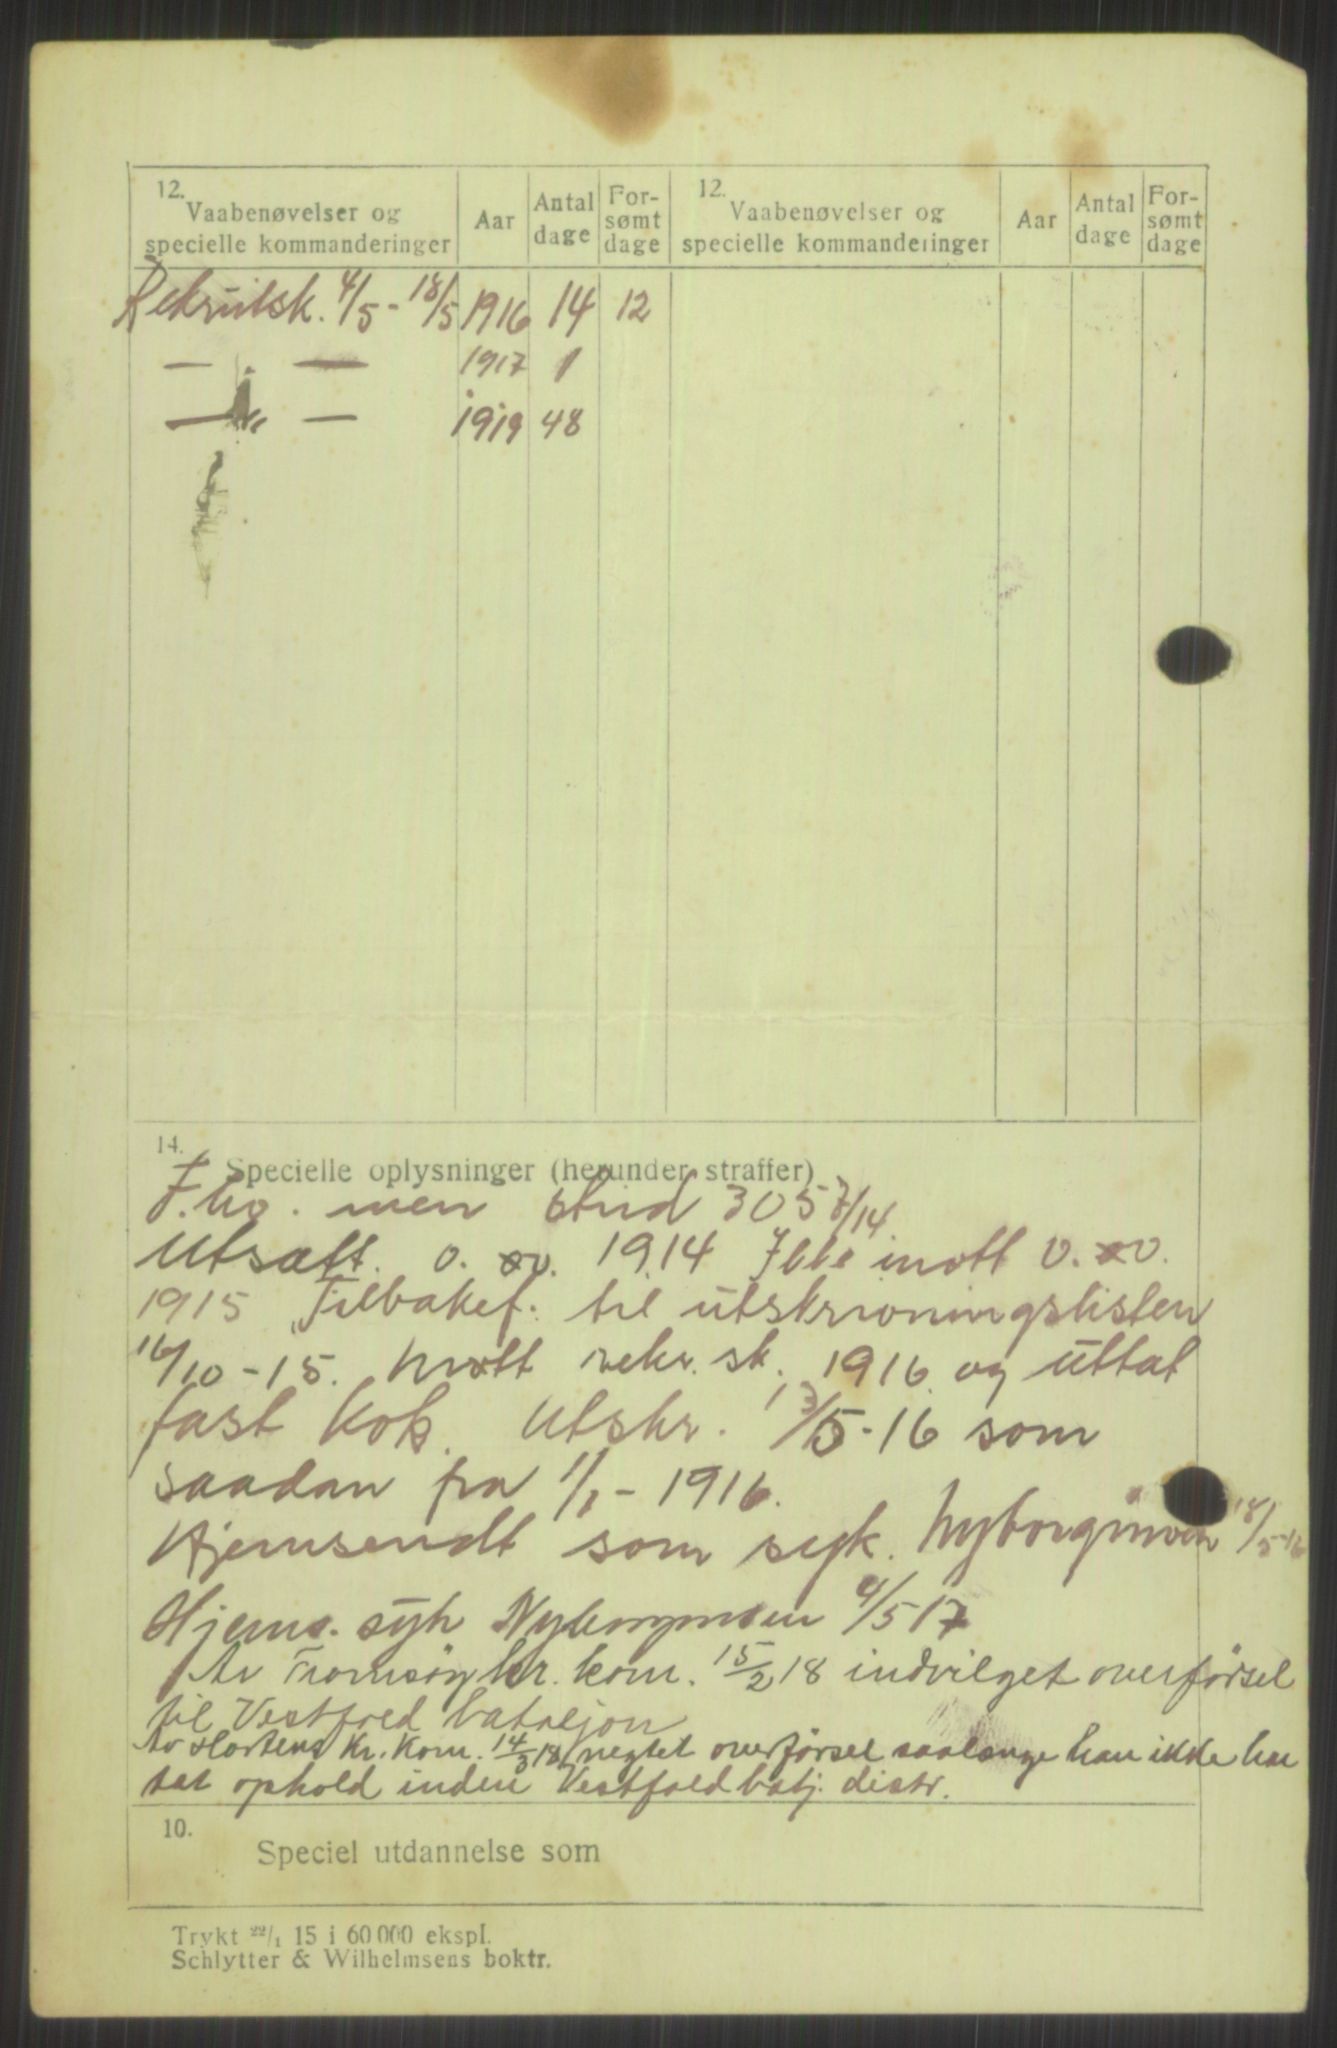 12.
Vaabenøvelser og
specielle kommanderinger
Aar
Antal
dage
For-
sømt
dage
12.
Vaabenøvelser og
specielle kommanderinger
Aar
Antal
dage
For-
sømt
dage
Rekrutsk. 4/5 - 18/5 1916 14 12
— " — 1917 1
— " — 1919 48
14.
Specielle oplysninger (herunder straffer)
men 305
Utsatt. 1914 Ikke mott
1915 Tilbakef. til utskrivningslisten
16/10 - 15. Møtt rekr. sk. 1916 og uttat
fast Kok. Utskr. 13/5 - 16 som
saadan fra 1/1 - 1916.
Hjemsendt som syk. Nyborgmoen 18/5-16
Hjems. syk Nyborgmoen 4/5 17
Av Tromsøy kr. kom. 15/2 18 indvilget overførsel
til Vestfold bataljon
Av Hortens Kr. Kom. 14/3 18 negtet overførsel saalænge han ikke har
tat ophold inden Vestfold batj. distr.
10.
Speciel utdannelse som
Trykt 22/1 15 i 60 000 ekspl.
Schlytter & Wilhelmsens boktr.